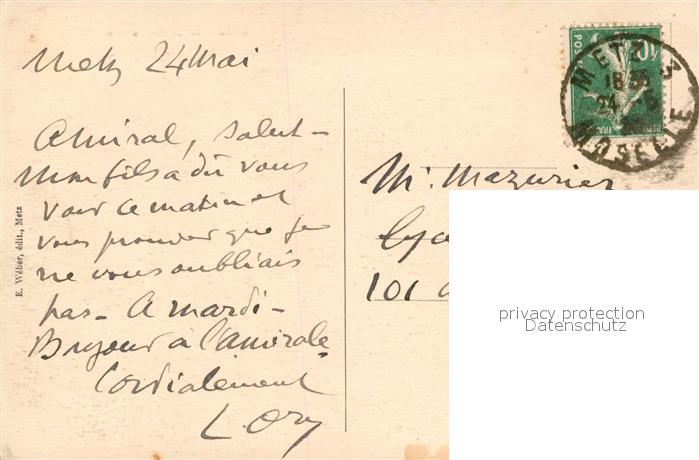 Metz 24 Mai
Amiral, Salut -
Mon fils a dû vous
voir ce matin et
vous prouver que je
ne vous oubliais
pas - A mardi -
Bonjour à l'amirale
Cordialement
L. Ory
E. Wéber, édit., Metz
POSTES
10
METZ 3
18 30
24 - 5
MOSELLE
Mr. Mazurier
101
privacy protection
Datenschutz